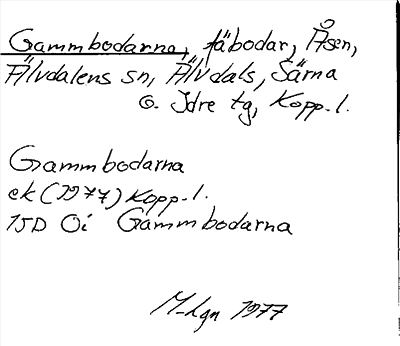 Gammbodarna, fäbodar, Åsen,
Älvdalens sn, Älvdals, Särna
o. Idre tg, Kopp. l.
Gammbodarna
ek (1977) Kopp. l.
15D 0i Gammbodarna
M-Lgn 1977